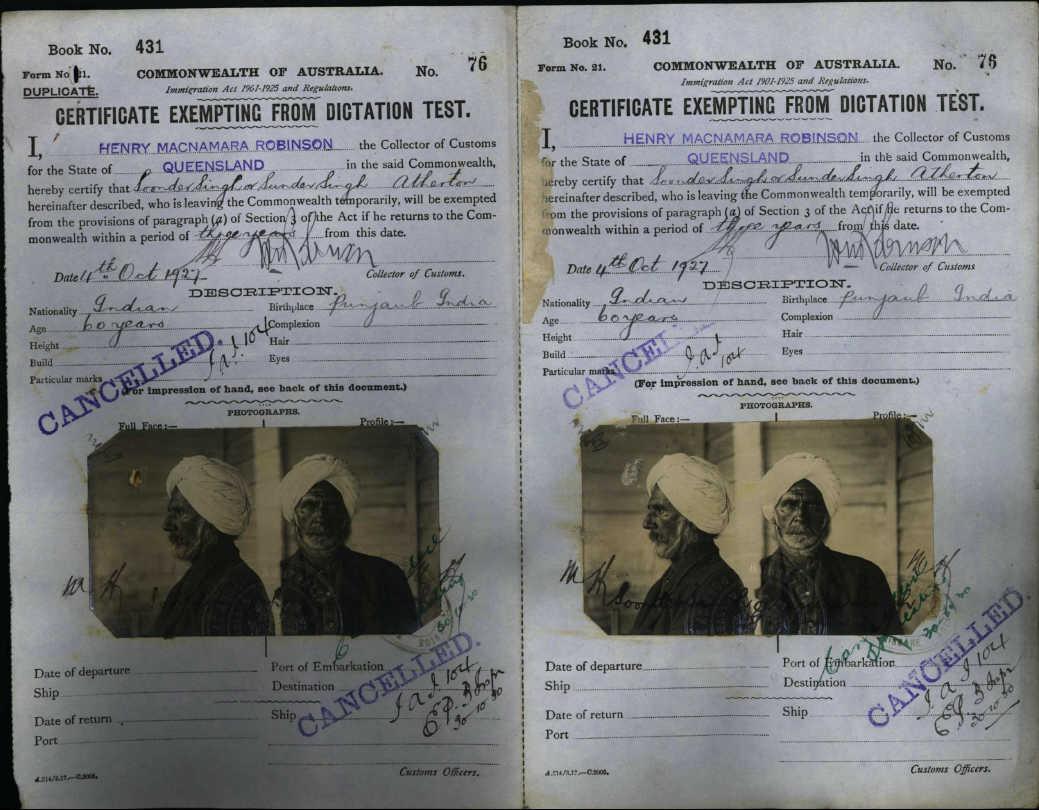 Book No. 431
Form No. 21.
DUPLICATE.
COMMONWEALTH OF AUSTRALIA.
No. 76
Immigration Act 1901-1925 and Regulations.
CERTIFICATE EXEMPTING FROM DICTATION TEST.
I, HENRY MACNAMARA ROBINSON the Collector of Customs
for the State of QUEENSLAND in the said Commonwealth,
hereby certify that Soonder Singh or Sunder Singh Atherton
hereinafter described, who is leaving the Commonwealth temporarily, will be exempted
from the provisions of paragraph (a) of Section 3 of the Act if he returns to the Com-
monwealth within a period of three years from this date.
Date 4th Oct 1927
Collector of Customs.
DESCRIPTION.
Nationality Indian
Birthplace Punjaub India
Age 60 years
Complexion
Height
Hair
Build
Eyes
Particular marks
CANCELLED.
J.A.S. 104
(For impression of hand, see back of this document.)
PHOTOGRAPHS.
Full Face:—
Profile:—
Date of departure
Port of Embarkation
Ship
Destination
CANCELLED.
Date of return
Ship
J A S. 104
30 10 30
Port
Customs Officers.
Book No. 431
Form No. 21.
COMMONWEALTH OF AUSTRALIA.
No. 76
Immigration Act 1901-1925 and Regulations.
CERTIFICATE EXEMPTING FROM DICTATION TEST.
I, HENRY MACNAMARA ROBINSON the Collector of Customs
for the State of QUEENSLAND in the said Commonwealth,
hereby certify that Soonder Singh or Sunder Singh Atherton
hereinafter described, who is leaving the Commonwealth temporarily, will be exempted
from the provisions of paragraph (a) of Section 3 of the Act if he returns to the Com-
monwealth within a period of three years from this date.
Date 4th Oct 1927
Collector of Customs
DESCRIPTION.
Nationality Indian
Birthplace Punjaub India
Age 60 years
Complexion
Height
Hair
Build
Eyes
Particular marks
CANCEL
J.A.S 104
(For impression of hand, see back of this document.)
PHOTOGRAPHS.
Full Face:—
Profile:—
Date of departure
Port of Embarkation
Ship
Destination
CANCELLED.
Date of return
Ship
J A S 104
Port
Customs Officers.